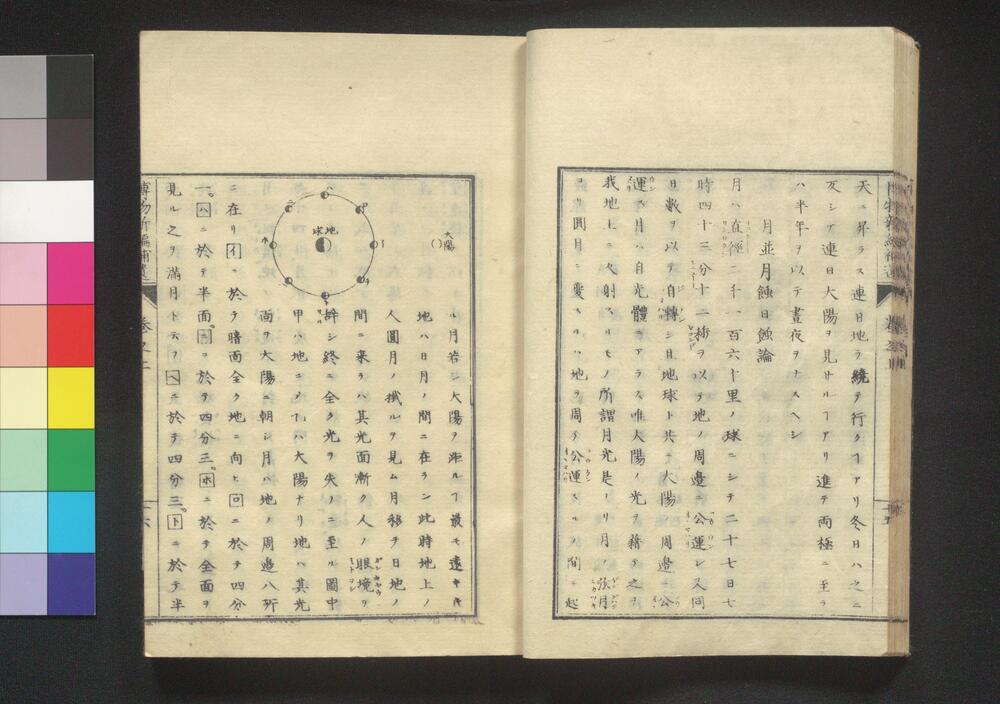 天ニ昇ラス連日地ヲ繞テ行クヿアリ冬日ハ之ニ
反シテ連日大陽ヲ見サルヿアリ進テ両極ニ至テ
ハ半年ヲ以テ晝夜ヲナスヘシ
月並月蝕日蝕論
月ハ直徑二千一百六十里ノ球ニシテ二十七日七
時四十三分十二秒ヲ以テ地ノ周邉ニ公運シ又同
日數ヲ以テ自轉シ且地球ト共ニ大陽ノ周邉ニ公
運ス月ハ自光體ニアラス唯大陽ノ光ヲ藉テ之ヲ
我地上ニ反射スルモノ所謂月光是ナリ月ノ弦月
ヨリ圓月ニ変スルハ地ヲ周テ公運スルノ間ニ起
ル月若シ大陽ヲ距ルヿ最モ遠キキ
地ハ日月ノ間ニ在ラン此時地上ノ
人圓月ノ機ルヲ見ム月移テ日地ノ
間ニ来ラハ其光面漸ク人ノ眼境ヲ
辞シ終ニ全ク光ヲ失フニ至ル圖中
甲ハ地ニシテ乙ハ大陽ナリ地ハ其光
面ヲ大陽ニ朝シ月ハ地ノ周邉八所
ニ在リイニ於テ暗面全ク地ニ向ヒロニ於テ四分
一。ハニ於テ半面。ニニ於テ四分三。ホニ於テ全面ヲ
見ル之ヲ滿月ト云フヘニ於テ四分三。トニ於テ半
大陽
地球
博物新編補遺
卷之上